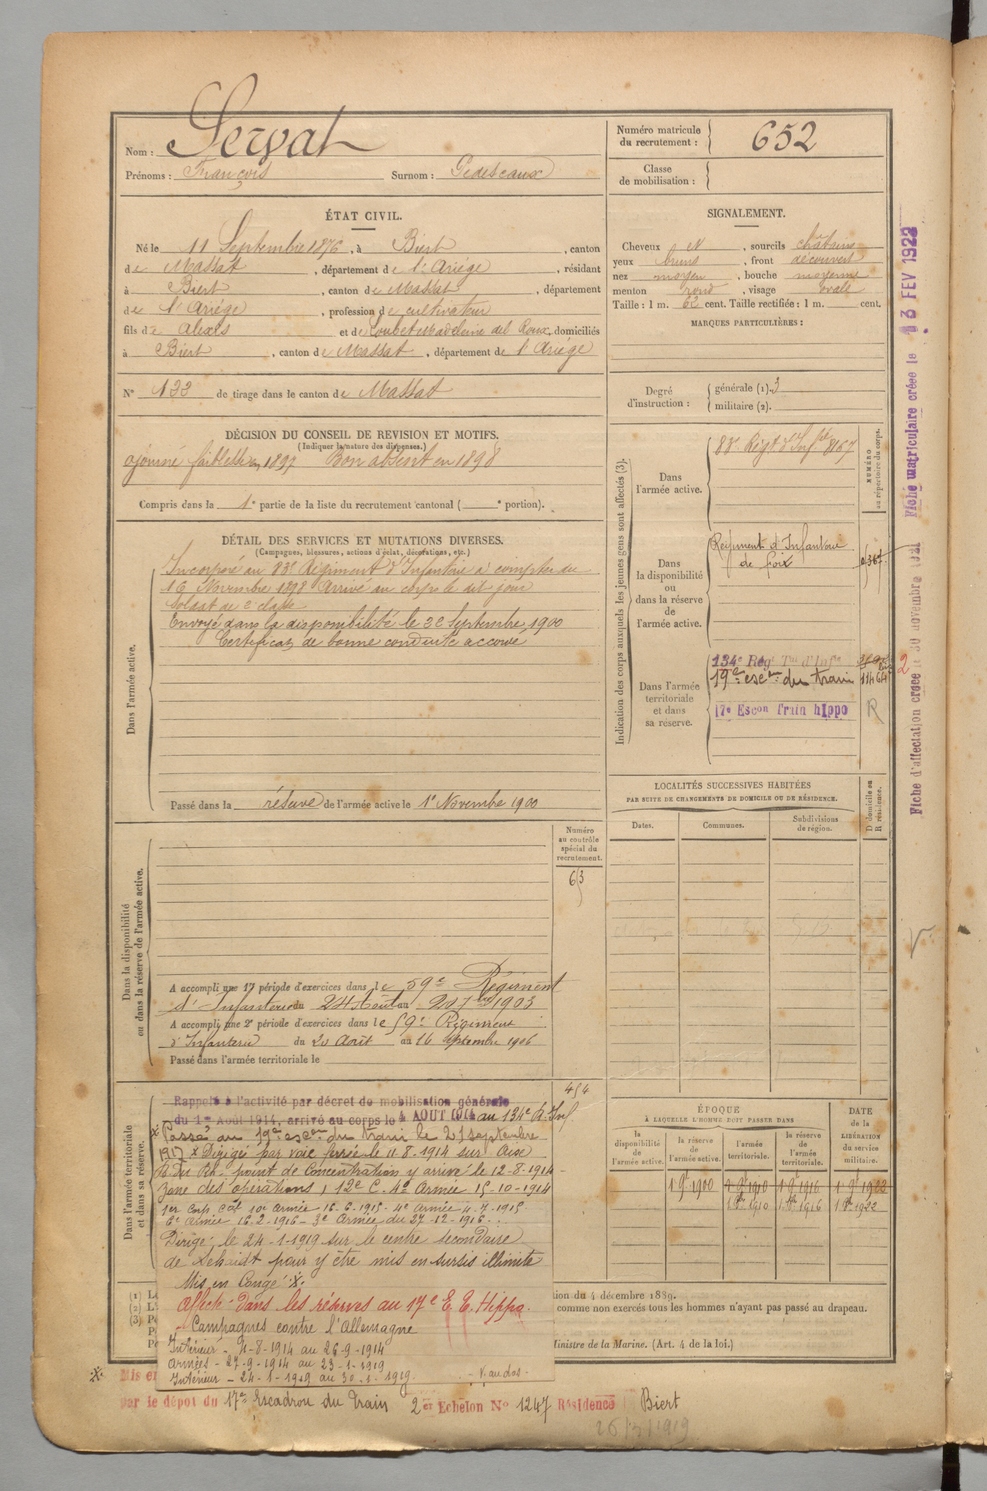 Nom : Servat
Prénoms : François Surnom :
Numéro matricule du recrutement : 652
Classe de mobilisation :
ÉTAT CIVIL.
Né le 11 Septembre 1876, à Biert, canton
de Massat, département de l'Ariége, résidant
à Biert, canton de Massat, département
de l'Ariége, profession de cultivateur
fils d'Alexis et de Loubet Madeleine, domiciliés
à Biert, canton de Massat, département de l'Ariége
N° 133 de tirage dans le canton de Massat
SIGNALEMENT.
Cheveux N, sourcils châtains
yeux bruns, front découvert
nez moyen, bouche moyenne
menton rond, visage ovale
Taille : 1 m. 62 cent. Taille rectifiée : 1 m. cent.
MARQUES PARTICULIÈRES :
Degré d'instruction : générale (1). 3
militaire (2).
DÉCISION DU CONSEIL DE REVISION ET MOTIFS.
(Indiquer la nature des dispenses.)
ajourné faiblesse en 1897 Bon absent en 1898
Compris dans la 1e partie de la liste du recrutement cantonal ( e portion).
DÉTAIL DES SERVICES ET MUTATIONS DIVERSES.
(Campagnes, blessures, actions d'éclat, décorations, etc.)
Dans l'armée active.
Incorporé au 83e Régiment d'Infanterie à compter du
16 Novembre 1898 Arrivé au corps le dit jour
Soldat de 2e classe
Envoyé dans la disponibilité le 22 Septembre 1900
Certificat de bonne conduite accordé
Passé dans la réserve de l'armée active le 1er Novembre 1900
Indication des corps auxquels les jeunes gens sont affectés (3).
NUMÉRO au répertoire du corps.
Dans l'armée active.
83e Régt d'Infie 8167
Dans la disponibilité ou dans la réserve de l'armée active.
Régiment d'Infanterie
de Foix
Dans l'armée territoriale et dans sa réserve.
134e Régt Tal d'Infie
19e escon du train
17e Escon Train hIppo
R
2
LOCALITÉS SUCCESSIVES HABITÉES
PAR SUITE DE CHANGEMENTS DE DOMICILE OU DE RÉSIDENCE.
Dates. Communes. Subdivisions de région. D domicile ou R résidence.
Dans la disponibilité ou dans la réserve de l'armée active.
Numéro au contrôle spécial du recrutement.
63
A accompli une 1e période d'exercices dans le 59e Régiment
d'Infanterie du 24 Août au 20 7bre 1903
A accompli une 2e période d'exercices dans le 59e Régiment
d'Infanterie du 20 Août au 16 Septembre 1906
Passé dans l'armée territoriale le
Dans l'armée territoriale et dans sa réserve.
454
Rappelé à l'activité par décret de mobilisation générale
du 1er Août 1914, arrivé au corps le 4 AOUT 1914 au 134e R. Inf
* Passé au 19e escon du train le 21 septembre
1917 * Dirigé par voie ferrée le 11-8-1914 sur Aix
point de Concentration y arrivé le 12-8-1914
Zone des opérations, 12e C. 4e Armée 15-10-1914
1er Corp Cal 10e Armée 16-6-1915 - 4e Armée 4-7-1915
6e Armée 16-2-1916 - 3e Armée du 27-12-1916 -
Dirigé le 24-1-1919 sur le centre secondaire
de pour y être mis en sursis illimité
Mis en Congé *
Affecté dans les réserves au 17e E. T. Hippo.
Campagnes contre l'Allemagne
Intérieur - 4-8-1914 au 26-9-1914
Armées - 27-9-1914 au 23-1-1919
Intérieur - 24-1-1919 au 30-1-1919 - V. au dos -
ÉPOQUE
À LAQUELLE L'HOMME DOIT PASSER DANS
DATE DE LA LIBÉRATION du service militaire.
la disponibilité de l'armée active. la réserve de l'armée active. l'armée territoriale. la réserve de l'armée territoriale.
1 9bre 1900 1 9bre 1910 1 9bre 1916 1 9bre 1923
1 8bre 1910 1 8bre 1916 1 8bre 1922
(1)
(2)
(3)
tion du 4 décembre 1889.
comme non exercés tous les hommes n'ayant pas passé au drapeau.
Ministre de la Marine. (Art. 4 de la loi.)
* Mis en
par le dépot du 17e Escadron du Train 2e Echelon N° 1247 Résidence Biert
26/2/1919
Fiche matriculaire créée le 13 FEV 1923
Fiche d'affectation créée le 30 novembre 1921